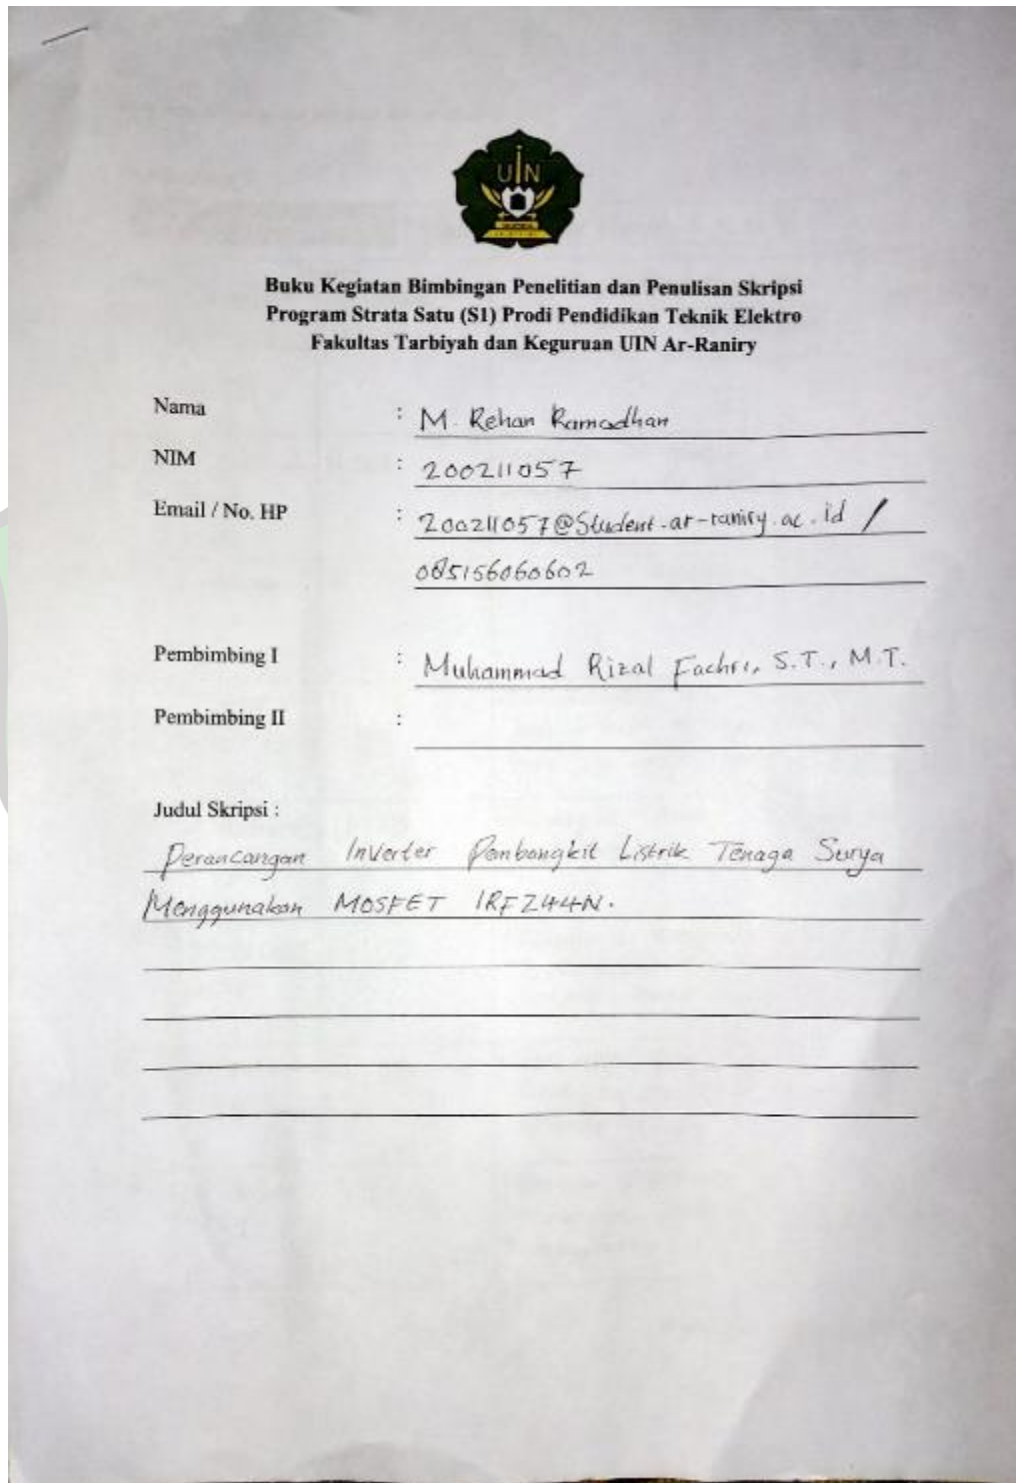 UIN
Buku Kegiatan Bimbingan Penelitian dan Penulisan Skripsi
Program Strata Satu (S1) Prodi Pendidikan Teknik Elektro
Fakultas Tarbiyah dan Keguruan UIN Ar-Raniry
Nama : M. Rehan Ramadhan
NIM : 200211057
Email / No. HP : 200211057@Student.ar-raniry.ac.id /
085156060602
Pembimbing I : Muhammad Rizal Fachri, S.T., M.T.
Pembimbing II :
Judul Skripsi :
Perancangan Inverter Pembangkit Listrik Tenaga Surya
Menggunakan MOSFET IRFZ44N.